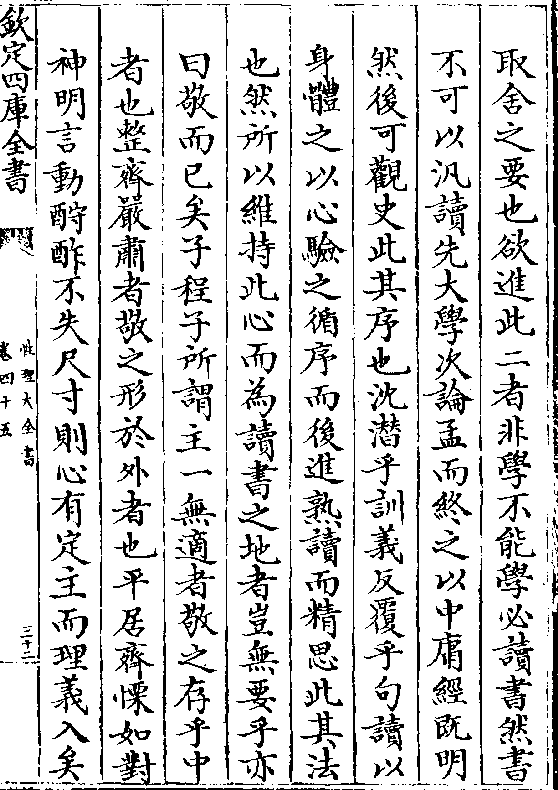 取舍之要也欲進此二者非學不能學必讀書然書
不可以汎讀先大學次論孟而終之以中庸經既明
然後可觀史此其序也沈潜乎訓義反覆乎句讀以
身體之以心驗之循序而後進熟讀而精思此其法
也然所以維持此心而為讀書之地者豈無要乎亦
曰敬而已矣子程子所謂主一無適者敬之存乎中
者也整齊嚴肅者敬之形於外者也平居齊慄如對
神明言動酧酢不失尺寸則心有定主而理義入矣
欽定四庫全書
性理大全書
卷四十五
三十二